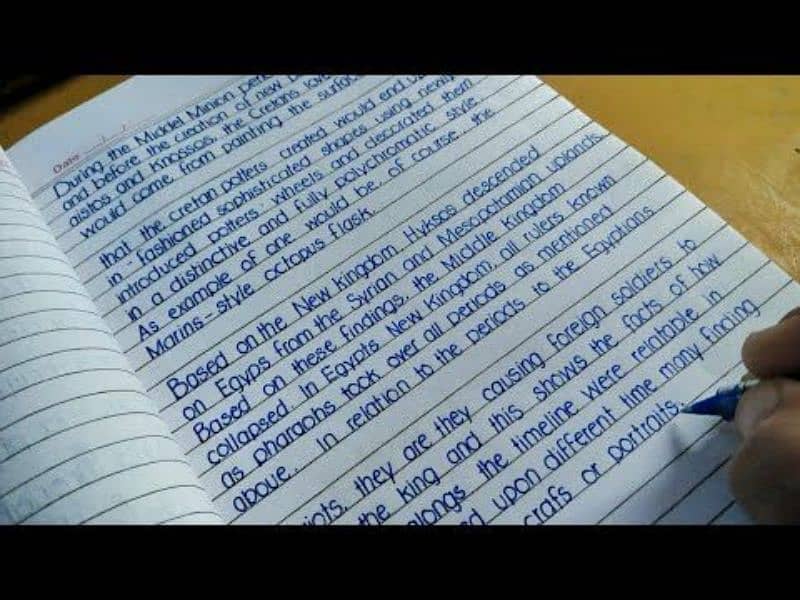 Date
During the Middel Minion
and before the creation of new
aistos and Knossos, the Cretans love
would come from painting the surface
that the cretan potters created would end
in-fashioned sophisticated shapes using newly
introduced potters' wheels and decorated them
in a distinctive and fully polychromatic style
As example of one would be, of course, the
Marins-style octopus flask.
Based on the New kingdom, Hyksos descended
on Egyps from the Syrian and Mesopotamian uplands
Based on these findings, the Middle Kingdom
collapsed in Egypts New Kingdom, all rulers known
as pharaohs took over all periods as mentioned
above.. In relation to the periods to the Egyptians
they are they causing foreign soldiers to
the king and this shows the facts of how
alongs the timeline were relatable in
upon different time many finding
crafs or portraits.